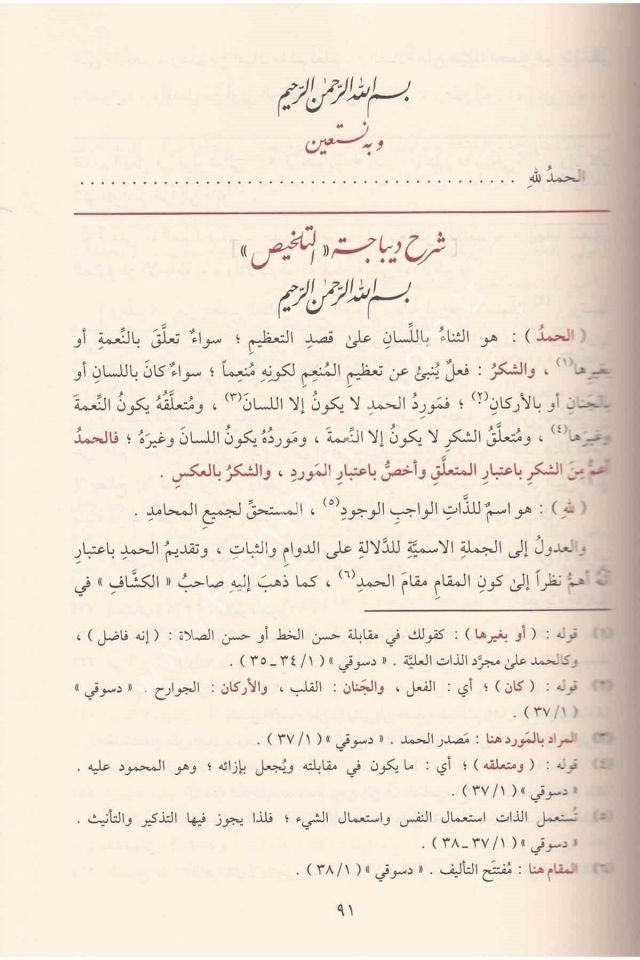 بسم الله الرحمن الرحيم
وبه نستعين
الحمدُ للهِ ................................................
[ شرح ديباجة «التلخيص» ]
بسم الله الرحمن الرحيم
( الحمدُ ) : هو الثناءُ باللِّسانِ علىٰ قصدِ التعظيمِ ؛ سواءٌ تعلَّقَ بالنِّعمةِ أو
بغيرِها(١) ، والشكرُ : فعلٌ يُنبئُ عن تعظيمِ المُنعِمِ لكونِهِ مُنعِماً ؛ سواءٌ كانَ باللسانِ أو
بالجَنانِ أو بالأركانِ(٢) ؛ فمَورِدُ الحمدِ لا يكونُ إلا اللسانَ(٣) ، ومُتعلَّقُهُ يكونُ النِّعمةَ
وغيرَها(٤) ، ومُتعلَّقُ الشكرِ لا يكونُ إلا النِّعمةَ ، ومَورِدُهُ يكونُ اللسانَ وغيرَهُ ؛ فالحمدُ
أعمُّ مِنَ الشكرِ باعتبارِ المتعلَّقِ وأخصُّ باعتبارِ المَورِدِ ، والشكرُ بالعكسِ .
( للهِ ) : هو اسمٌ للذَّاتِ الواجبِ الوجودِ(٥) ، المستحقِّ لجميعِ المحامدِ .
والعدولُ إلى الجملةِ الاسميَّةِ للدَّلالةِ على الدوامِ والثباتِ ، وتقديمُ الحمدِ باعتبارِ
أنَّهُ أهمُّ نظراً إلىٰ كونِ المقامِ مقامَ الحمدِ(٦) ، كما ذهبَ إليهِ صاحبُ « الكشَّافِ » في
(١) قوله : ( أو بغيرها ) : كقولك في مقابلة حسن الخط أو حسن الصلاة : ( إنه فاضل ) ،
وكالحمد علىٰ مجرَّد الذات العليَّة . « دسوقي » ( ١/ ٣٤ـ ٣٥ ) .
(٢) قوله : ( كان ) ؛ أي : الفعل ، والجَنان : القلب ، والأركان : الجوارح . « دسوقي »
( ١/ ٣٧ ) .
(٣) المراد بالمَورِد هنا : مَصدر الحمد . « دسوقي » ( ١/ ٣٧ ) .
(٤) قوله : ( ومتعلقه ) ؛ أي : ما يكون في مقابلته ويُجعل بإزائه ؛ وهو المحمود عليه .
« دسوقي » ( ١/ ٣٧ ) .
(٥) تُستعمل الذات استعمال النفس واستعمال الشيء ؛ فلذا يجوز فيها التذكير والتأنيث .
« دسوقي » ( ١/ ٣٧ـ ٣٨ ) .
(٦) المقام هنا : مُفتتَح التأليف . « دسوقي » ( ١/ ٣٨ ) .
٩١